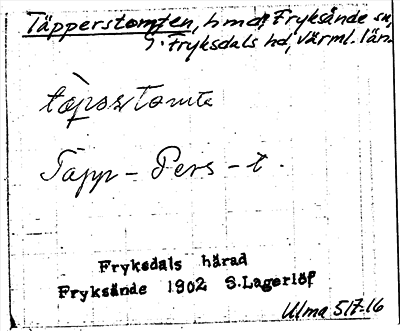 Täpperstomten, hmd, Fryksände sn,
S. Fryksdals hd, Värml. län.
Täpp – Pers – t.
Fryksdals härad
Fryksände 1902 S. Lagerlöf
Ulma 517:16